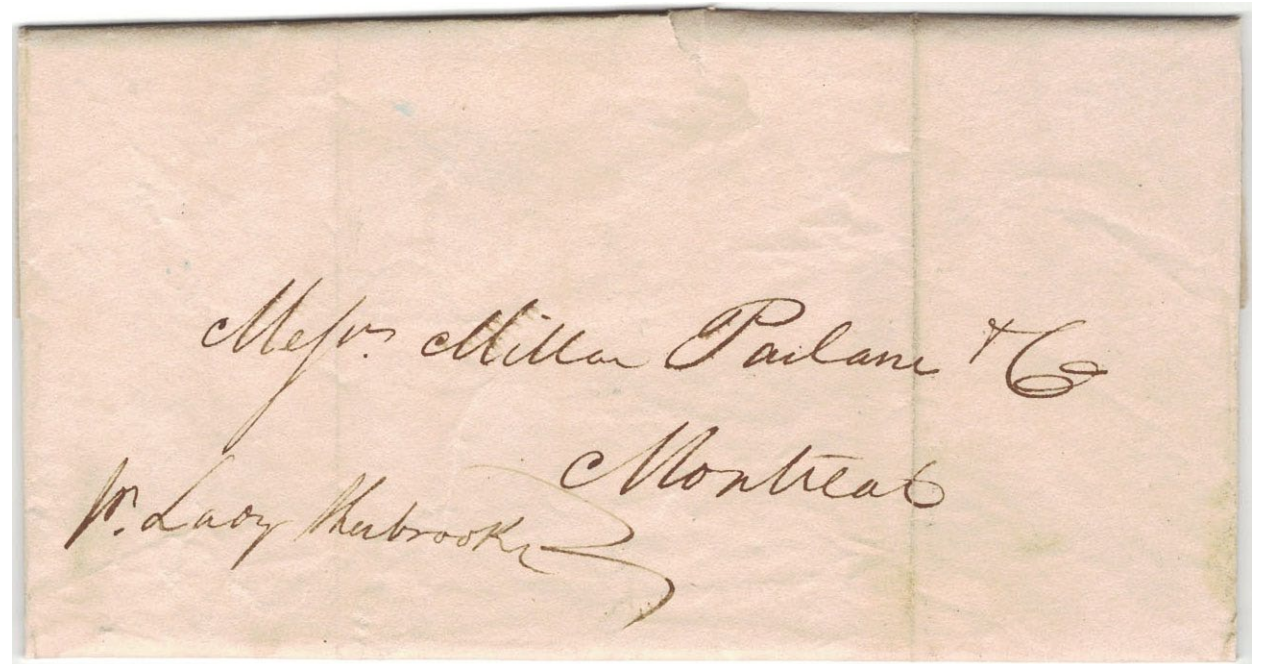 Messrs. Millar Parlane & Co
Montreal
pr. Lady Sherbrooke